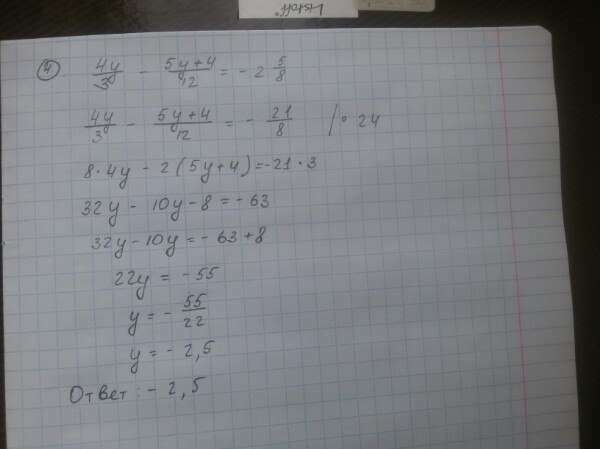 4) 4y/3 - 5y+4/12 = - 2 5/8
4y/3 - 5y+4/12 = - 21/8 | · 24
8 · 4y - 2(5y+4) = -21 · 3
32y - 10y - 8 = - 63
32y - 10y = - 63 + 8
22y = - 55
y = - 55/22
y = - 2,5
Ответ : - 2,5